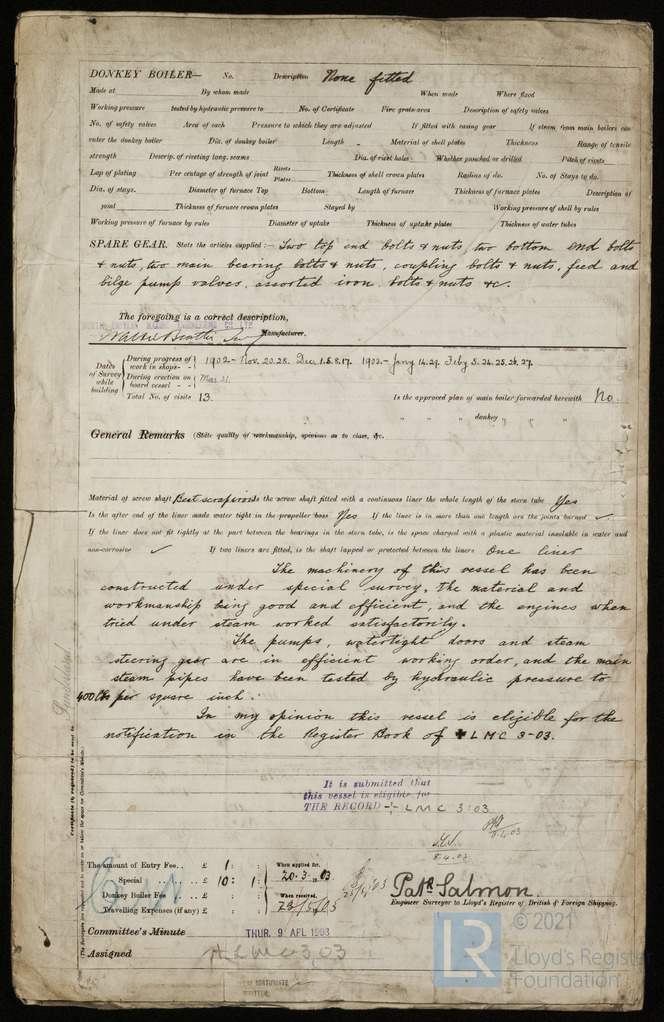 DONKEY BOILER— No. Description None fitted
Made at By whom made When made Where fixed
Working pressure tested by hydraulic pressure to No. of Certificate Fire grate area Description of safety valves
No. of safety valves Area of each Pressure to which they are adjusted If fitted with easing gear If steam from main boilers can
enter the donkey boiler Dia. of donkey boiler Length Material of shell plates Thickness Range of tensile
strength Descrip. of riveting long. seams Dia. of rivet holes Whether punched or drilled Pitch of rivets
Lap of plating Per centage of strength of joint Rivets Plates Thickness of shell crown plates Radius of do. No. of Stays to do.
Dia. of stays. Diameter of furnace Top Bottom Length of furnace Thickness of furnace plates Description of
joint Thickness of furnace crown plates Stayed by Working pressure of shell by rules
Working pressure of furnace by rules Diameter of uptake Thickness of uptake plates Thickness of water tubes
SPARE GEAR. State the articles supplied:— Two top end bolts & nuts, two bottom end bolts
& nuts, two main bearing bolts & nuts, coupling bolts & nuts, feed and
bilge pump valves, assorted iron, bolts & nuts &c.
The foregoing is a correct description,
Manufacturer.
Dates of Survey while building
During progress of work in shops - - 1902 - Nov. 20. 28. Dec. 1. 5. 8. 17. 1902 - Jany 14. 29. Feby 5. 24. 25. 26. 27.
During erection on board vessel - - Mar 31.
Total No. of visits 13. Is the approved plan of main boiler forwarded herewith No.
" " " donkey " " "
General Remarks (State quality of workmanship, opinions as to class, &c.
Material of screw shaft Best scrap iron Is the screw shaft fitted with a continuous liner the whole length of the stern tube Yes
Is the after end of the liner made water tight in the propeller boss Yes If the liner is in more than one length are the joints burned ✓
If the liner does not fit tightly at the part between the bearings in the stern tube, is the space charged with a plastic material insoluble in water and
non-corrosive ✓ If two liners are fitted, is the shaft lapped or protected between the liners One liner
The machinery of this vessel has been
constructed under special survey, the material and
workmanship being good and efficient, and the engines when
tried under steam worked satisfactorily.
The pumps, watertight doors and steam
steering gear are in efficient working order, and the main
steam pipes have been tested by hydraulic pressure to
400 lbs per square inch.
In my opinion this vessel is eligible for the
notification in the Register Book of ✠ L M C 3-03.
It is submitted that
this vessel is eligible for
THE RECORD + L M C 3:03
8.4.03
The amount of Entry Fee.. £ 1 : : When applied for,
Special £ 10 : 1 : 20.3.03
Donkey Boiler Fee £ : : When received,
Travelling Expenses (if any) £ : :
Patk Salmon.
Engineer Surveyor to Lloyd's Register of British & Foreign Shipping.
Committee's Minute THUR. 9 APL 1903
Assigned + L M C 3,03
Certificate (if required) to be sent to
Sunderland
© 2021
LR
Lloyd's Register
Foundation